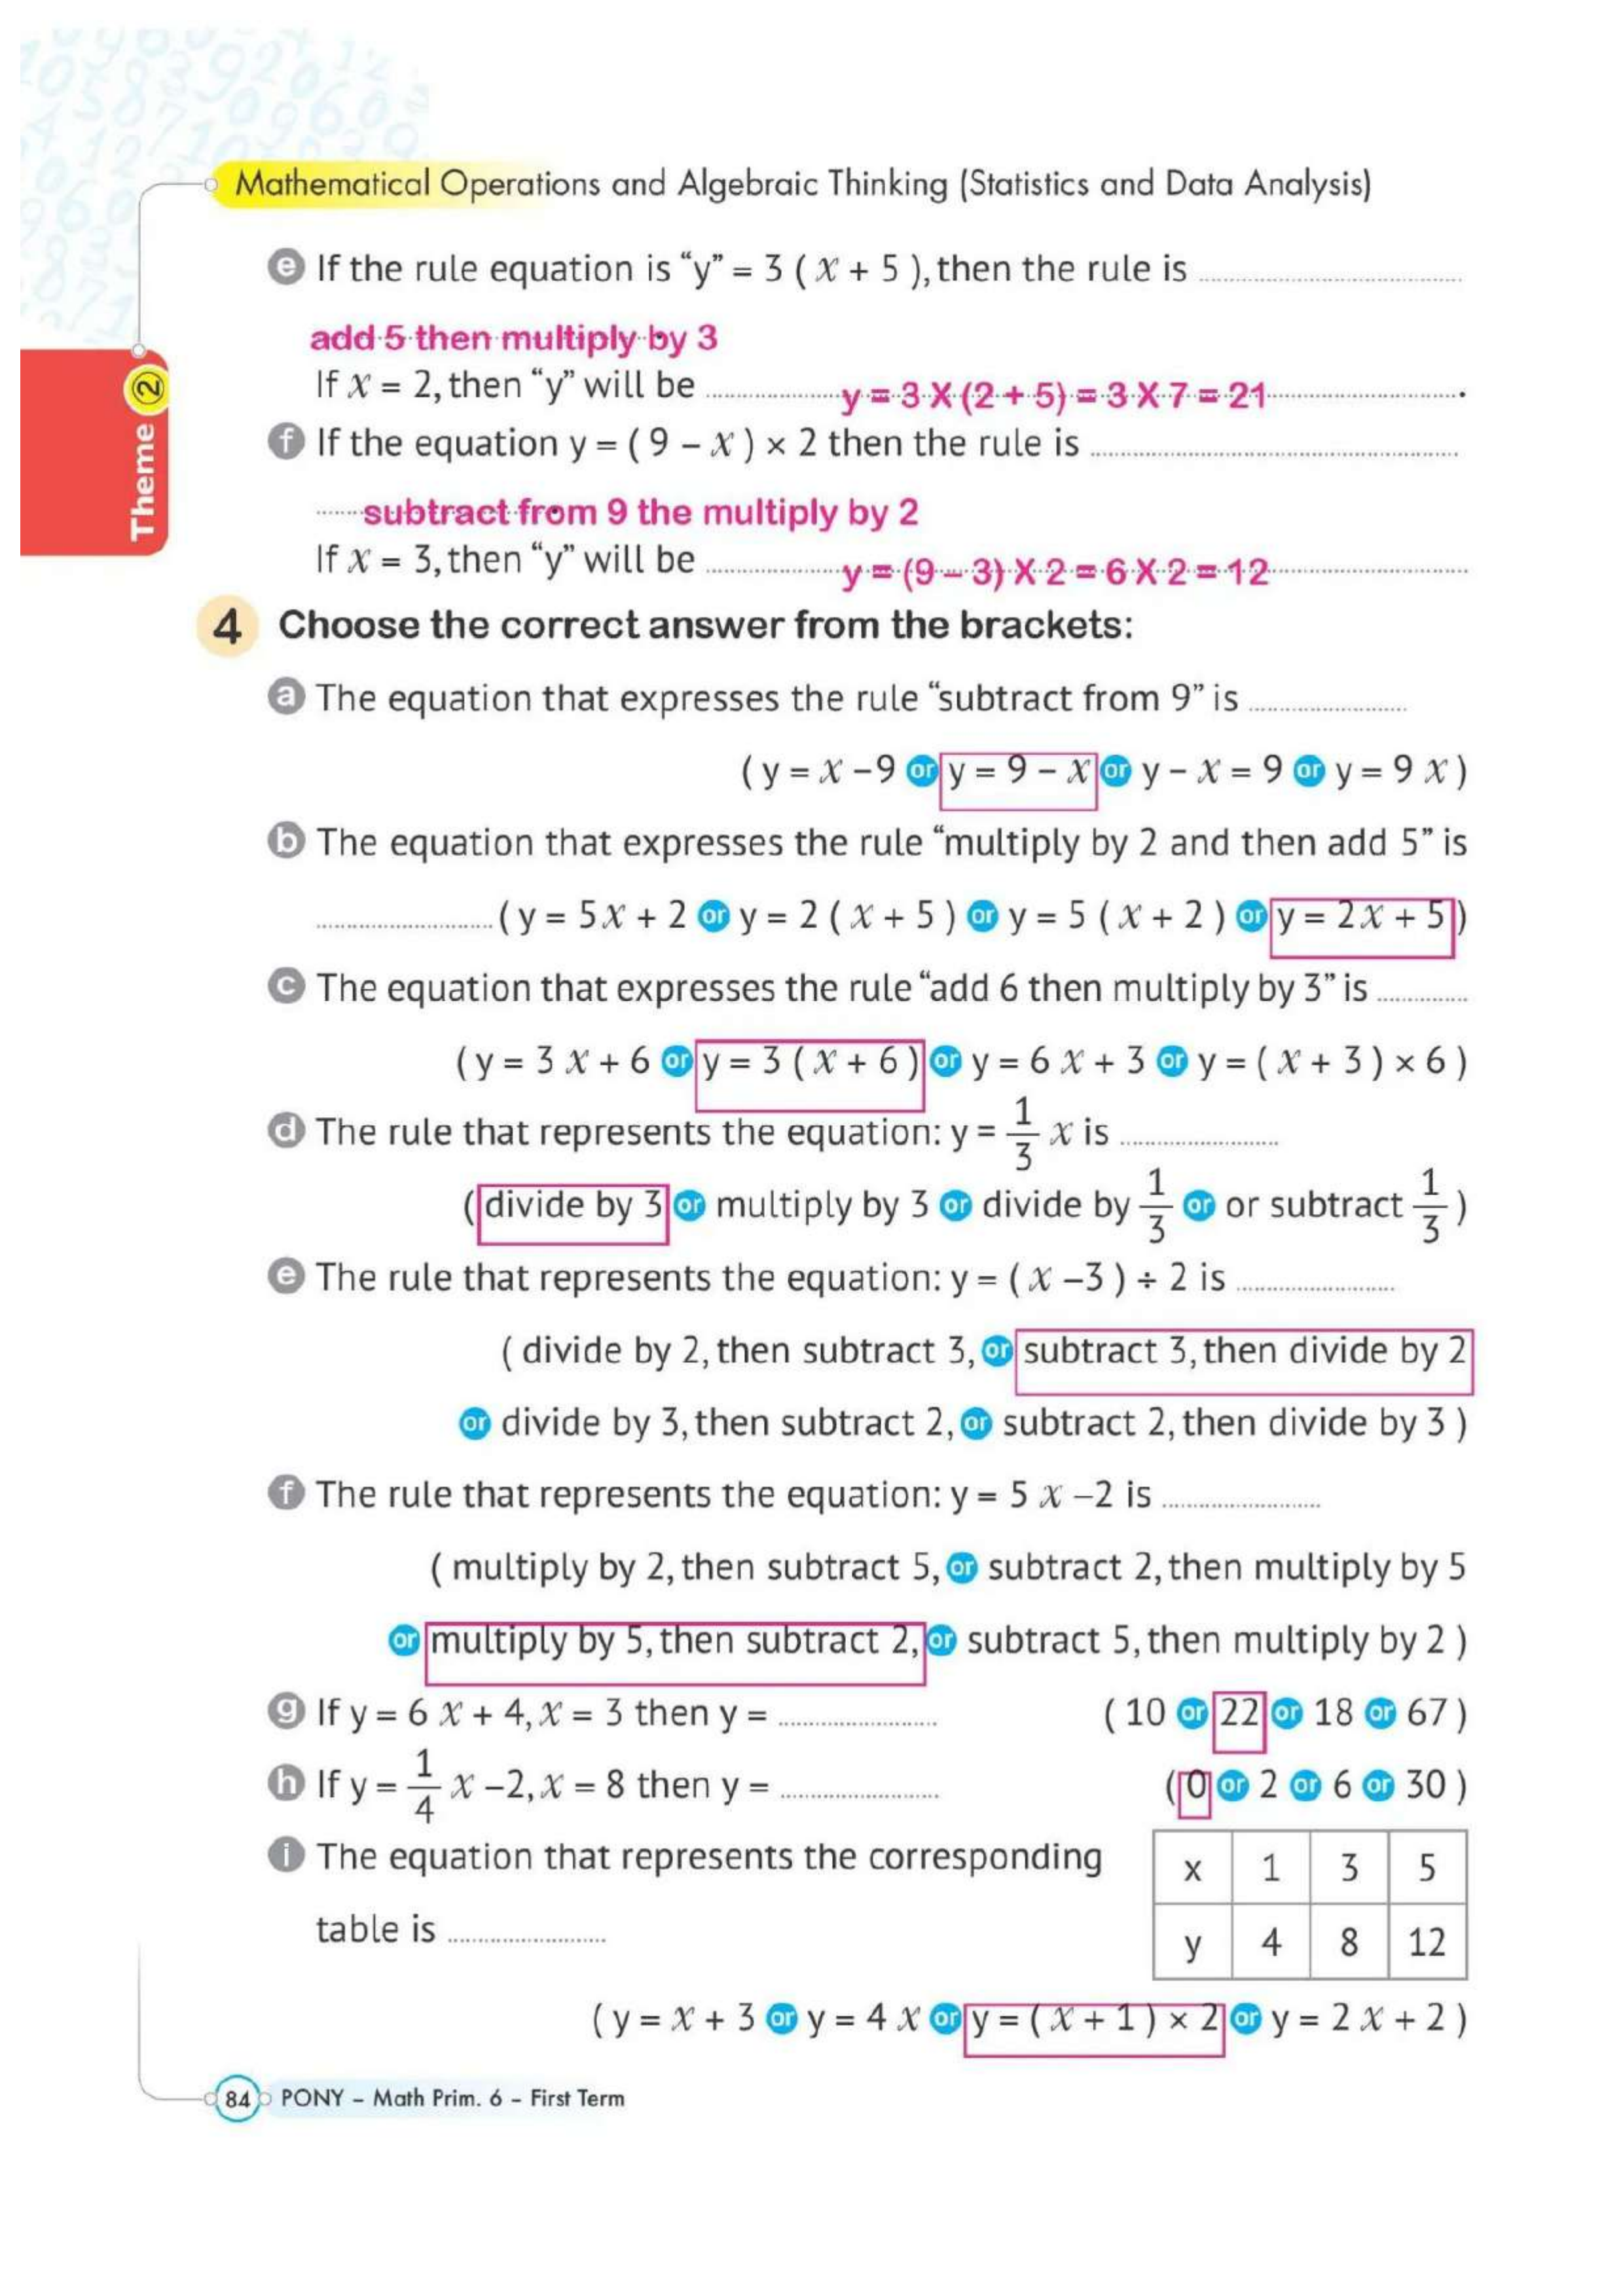 Mathematical Operations and Algebraic Thinking (Statistics and Data Analysis)
Theme 2
e If the rule equation is “y” = 3 ( x + 5 ), then the rule is ........................
add 5 then multiply by 3
If x = 2, then “y” will be ........ y = 3 X (2 + 5) = 3 X 7 = 21 ........ .
f If the equation y = ( 9 – x ) × 2 then the rule is ........................
subtract from 9 the multiply by 2
If x = 3, then “y” will be ........ y = (9 – 3) X 2 = 6 X 2 = 12 ........
4 Choose the correct answer from the brackets:
a The equation that expresses the rule “subtract from 9” is ................
( y = x –9 or y = 9 – x or y – x = 9 or y = 9 x )
b The equation that expresses the rule “multiply by 2 and then add 5” is
................ ( y = 5x + 2 or y = 2 ( x + 5 ) or y = 5 ( x + 2 ) or y = 2x + 5 )
c The equation that expresses the rule “add 6 then multiply by 3” is ............
( y = 3 x + 6 or y = 3 ( x + 6 ) or y = 6 x + 3 or y = ( x + 3 ) × 6 )
d The rule that represents the equation: y = 1/3 x is ................
( divide by 3 or multiply by 3 or divide by 1/3 or or subtract 1/3 )
e The rule that represents the equation: y = ( x –3 ) ÷ 2 is ................
( divide by 2, then subtract 3, or subtract 3, then divide by 2
or divide by 3, then subtract 2, or subtract 2, then divide by 3 )
f The rule that represents the equation: y = 5 x –2 is ................
( multiply by 2, then subtract 5, or subtract 2, then multiply by 5
or multiply by 5, then subtract 2, or subtract 5, then multiply by 2 )
g If y = 6 x + 4, x = 3 then y = ................ ( 10 or 22 or 18 or 67 )
h If y = 1/4 x –2, x = 8 then y = ................ ( 0 or 2 or 6 or 30 )
i The equation that represents the corresponding
table is ................
x 1 3 5
y 4 8 12
( y = x + 3 or y = 4 x or y = ( x + 1 ) × 2 or y = 2 x + 2 )
84 PONY – Math Prim. 6 – First Term